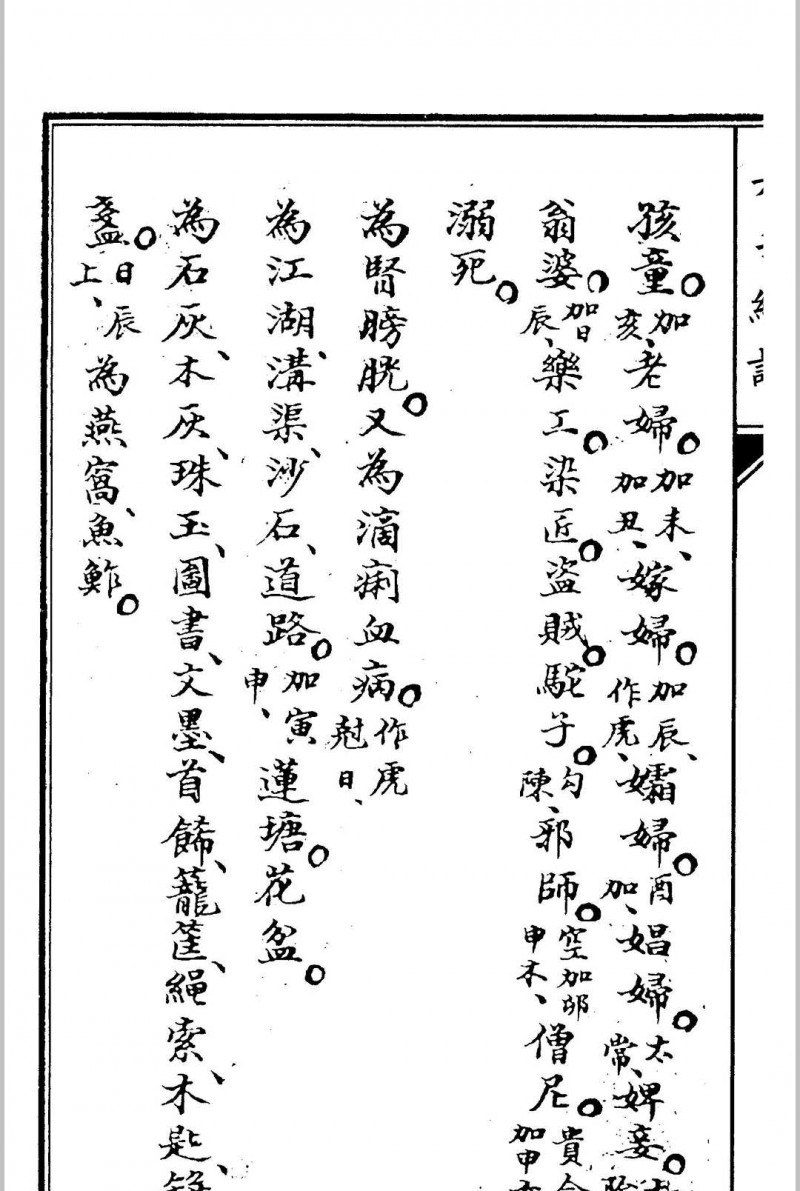 孩童。加亥、老婦。加未、加丑、嫁婦。加辰、作虎、孀婦。酉加、娼婦。太常、婢妾。
翁婆。加日辰、樂工。染匠。盜賊。駝子。勾陳、邪師。空加卯申木、僧尼。貴
溺死。
為腎膀胱。又為滴痢血病。作虎尅日、
為江湖、溝渠、沙石、道路。加寅申、蓮塘。花盆。
為石灰、木灰、珠玉、圖書、文墨、首飾、籠筐、繩索、木匙、
盞。日辰上、為燕窩、魚鮓。